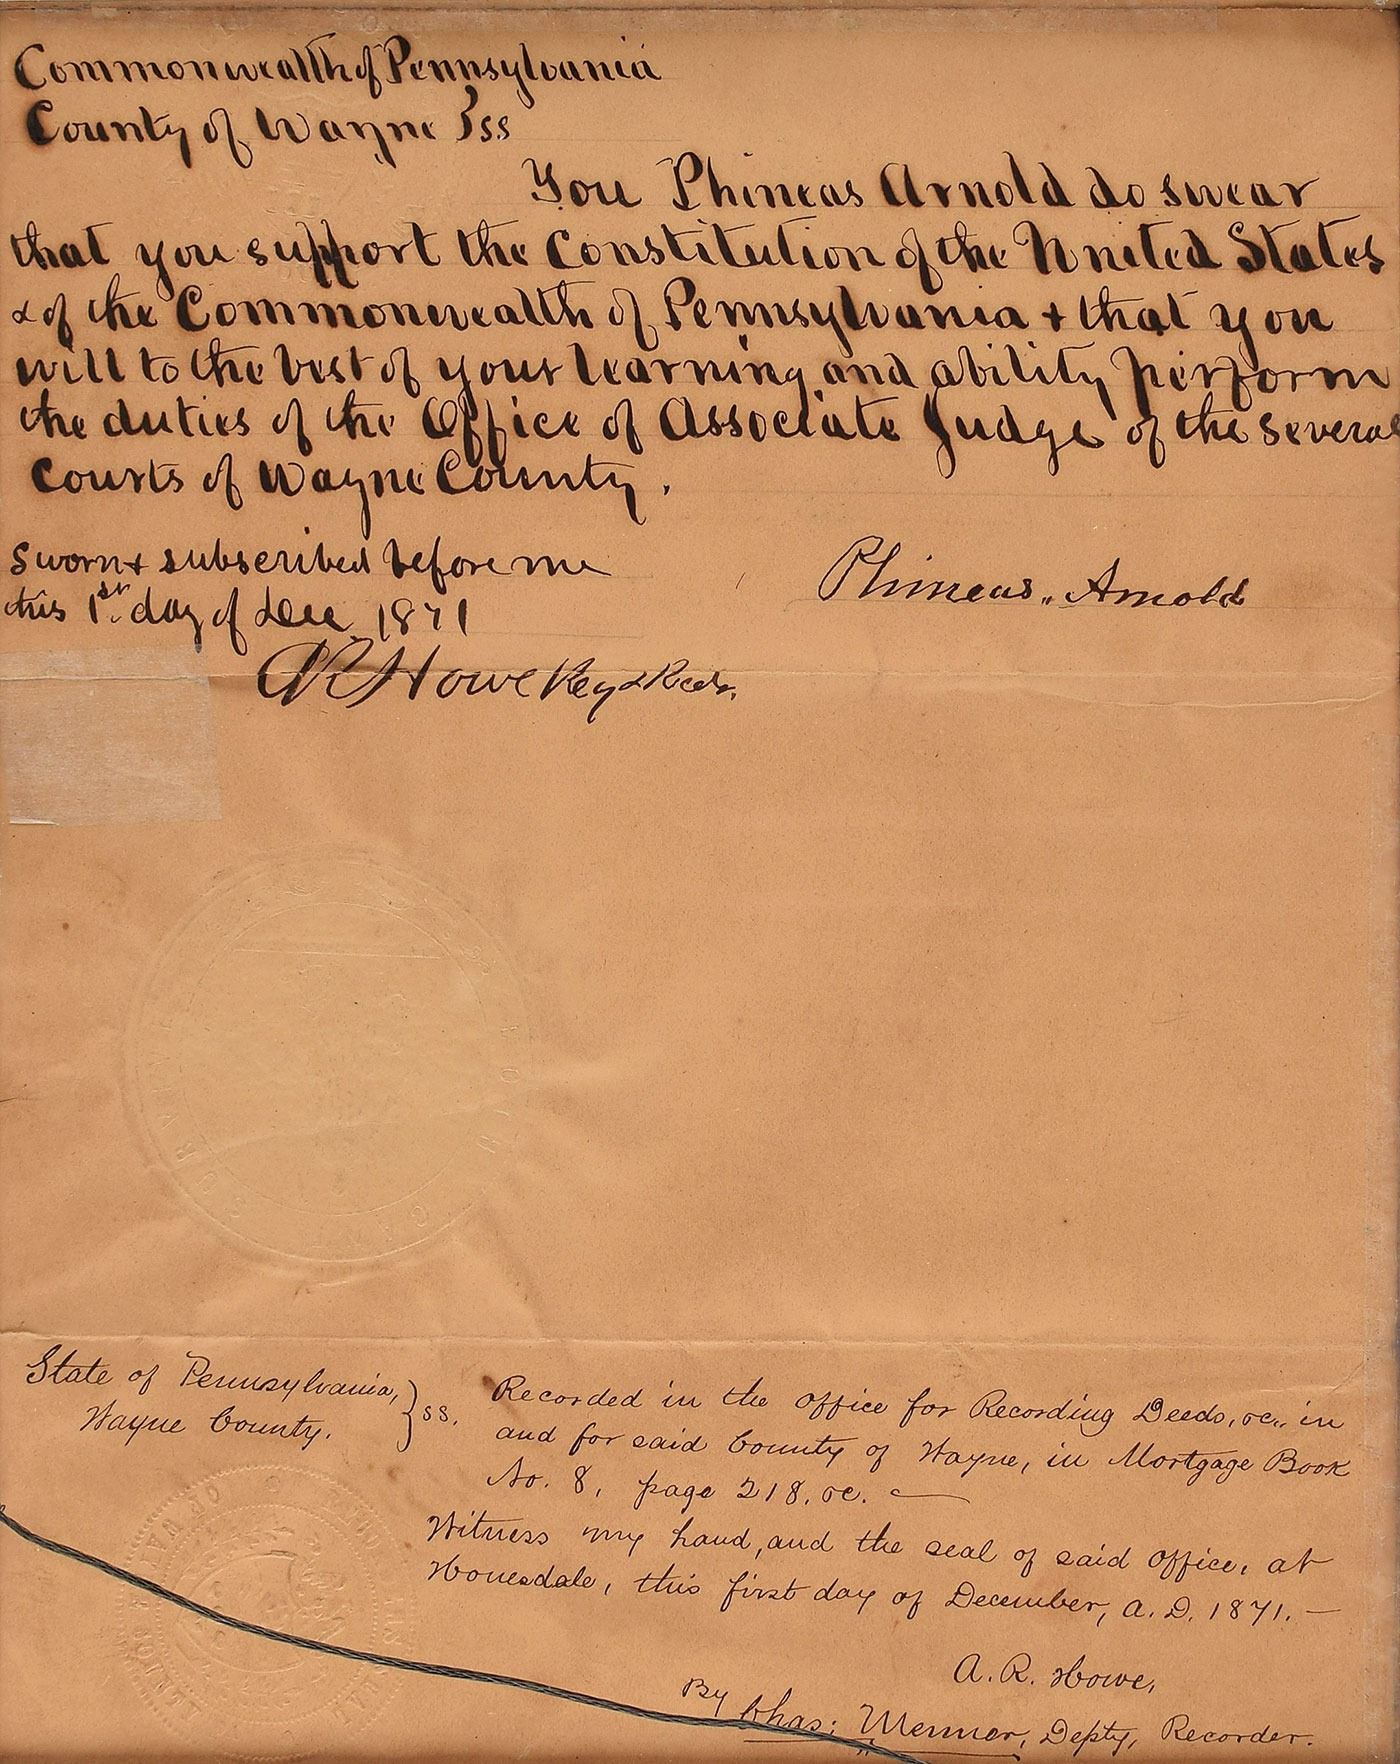 Commonwealth of Pennsylvania
County of Wayne } ss
You Phineas Arnold do swear
that you support the Constitution of the United States
& of the Commonwealth of Pennsylvania + that you
will to the best of your learning and ability perform
the duties of the Office of Associate Judge of the several
Courts of Wayne County.
Sworn + subscribed before me
this 1st. day of Dec 1871
Phineas Arnold
A R Howe Reg & Recdr.
State of Pennsylvania,
Wayne County. } ss.
Recorded in the office for Recording Deeds, &c., in
and for said County of Wayne, in Mortgage Book
No. 8, page 218, &c.
Witness my hand, and the seal of said office, at
Honesdale, this first day of December, A. D. 1871. —
A. R. Howe,
By Chas: Menner, Depty, Recorder.